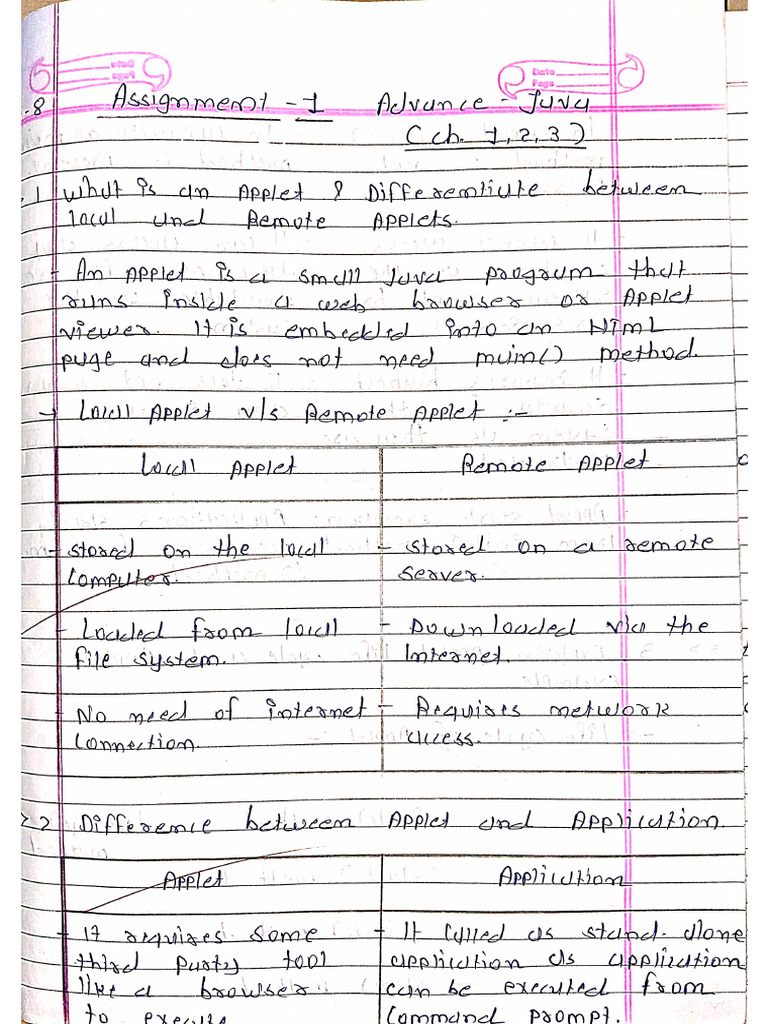 Date
Page
Date
Page
.8 Assignment - 1 Advance - Java
(ch. 1, 2, 3)
.1 What is an Applet & Differentiate between
local and Remote Applets.
- An Applet is a small Java program that
runs inside a web browser or Applet
viewer. It is embedded into an HTML
page and does not need main() method.
→ Local Applet v/s Remote Applet :-
Local Applet Remote Applet
- stored on the local - stored on a remote
Computer. server.
- Loaded from local - Downloaded via the
file system. Internet.
- No need of internet - Requires network
Connection. access.
2 Difference between Applet and Application.
Applet Application
- It requires some - It called as stand-alone
third party tool application as application
like a browser can be executed from
to execute Command prompt.